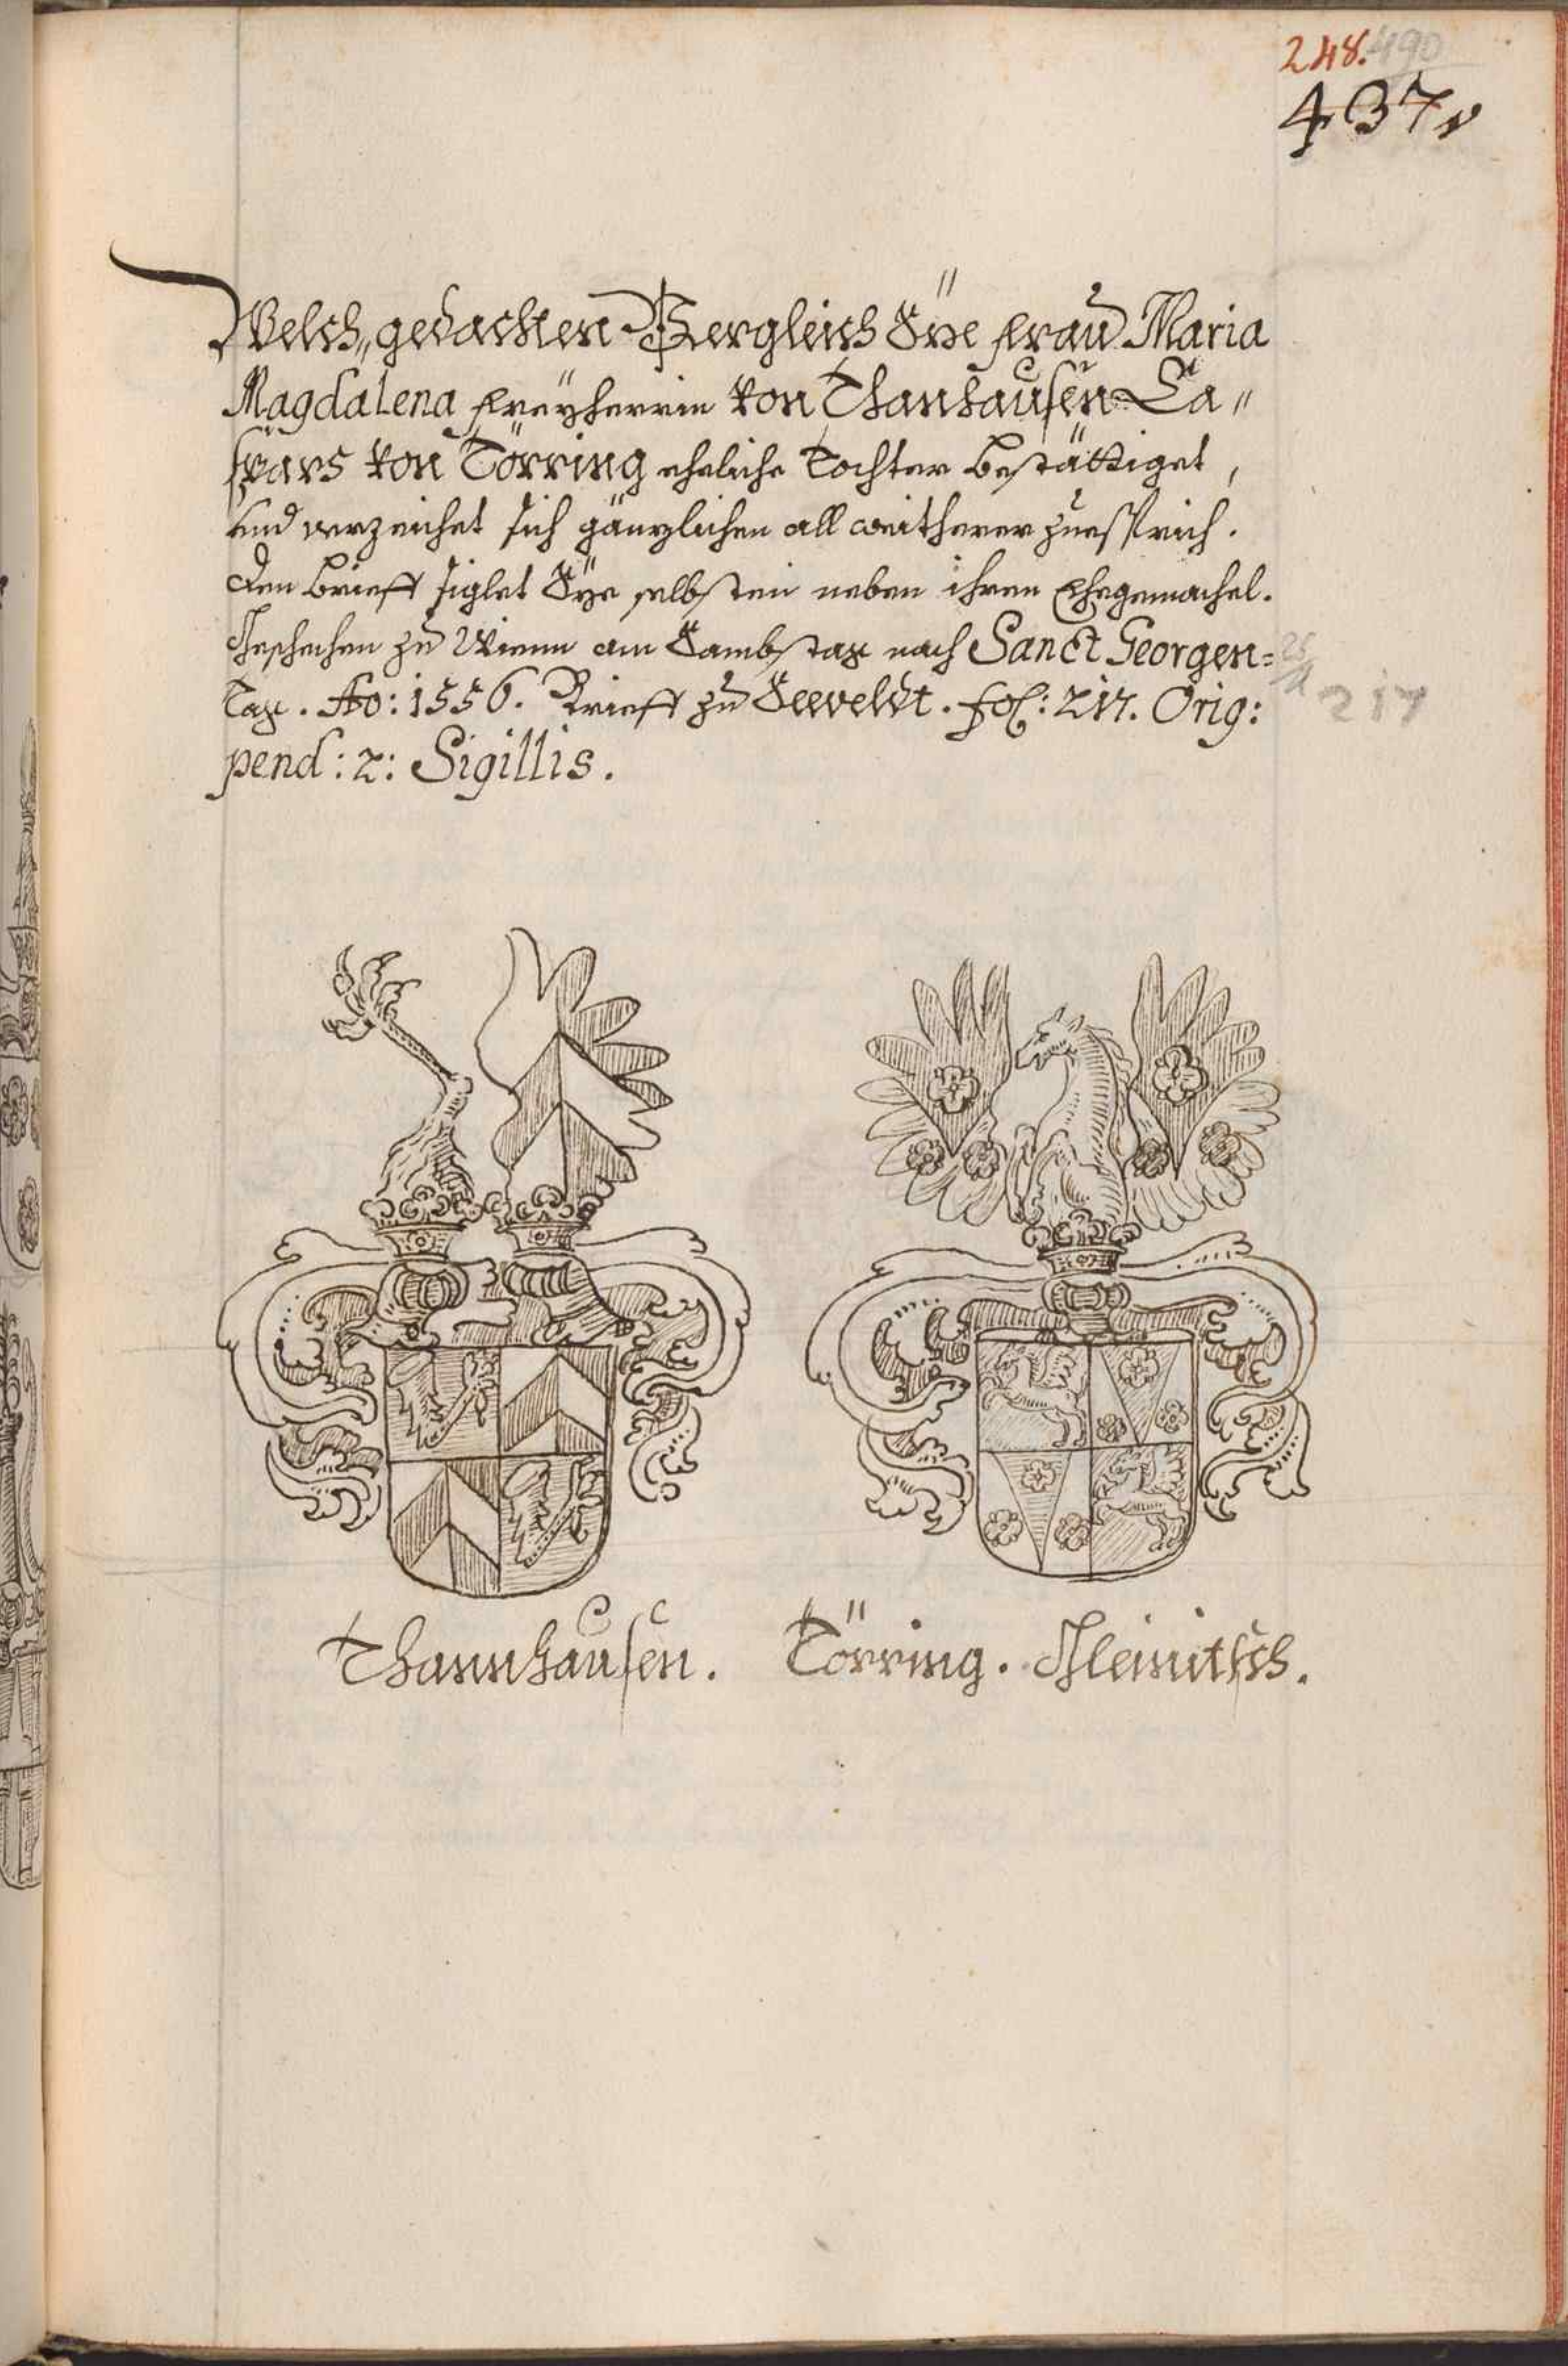 248. 490
437.
Welch„ gedachten Vergleich Sÿe Frau Maria
Magdalena Freÿherrin von Thanhausen Ca„
spars von Törring eheliche Tochter bestättiget,
und verzeichet sich gänzlichen all weitherer zuesprich.
Den brieff siglet Sÿe selbsten neben ihren Ehegemachel.
Geschechen zu Wienn am Sambstag nach Sanct Georgen=
Tag. Ao: 1556. Brieff zu Seeveldt. fol: 217. Orig:
217
pend: 2: Sigillis.
Thannhausen. Törring. Gleinitsch.